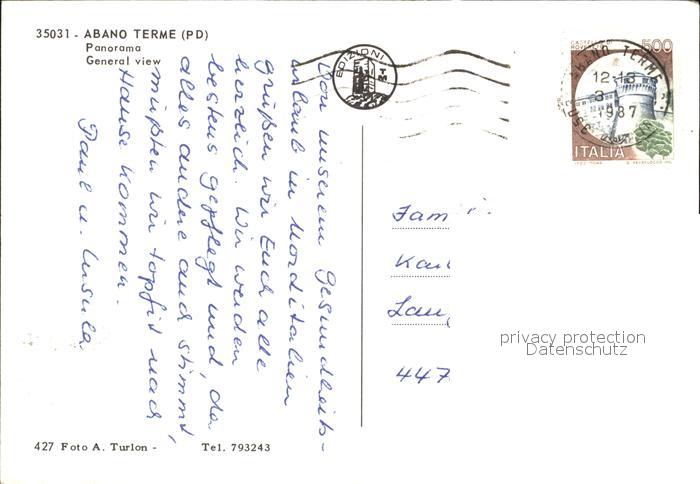 35031 - ABANO TERME (PD)
Panorama
General view
EDIZIONI
TM
CASTELLO DI
ROVERETO
500
ABANO TERME
12-13
1987
ITALIA
Von unserem Gesundheits-
urlaub in Norditalien
grüßen wir Euch alle
herzlich. Wir werden
bestens gepflegt und, da
alles andere auch stimmt,
müßten wir topfit nach
Hause kommen.
Paul u. Ursula.
Fam
Kar
Lau
447
privacy protection
Datenschutz
427 Foto A. Turlon - Tel. 793243